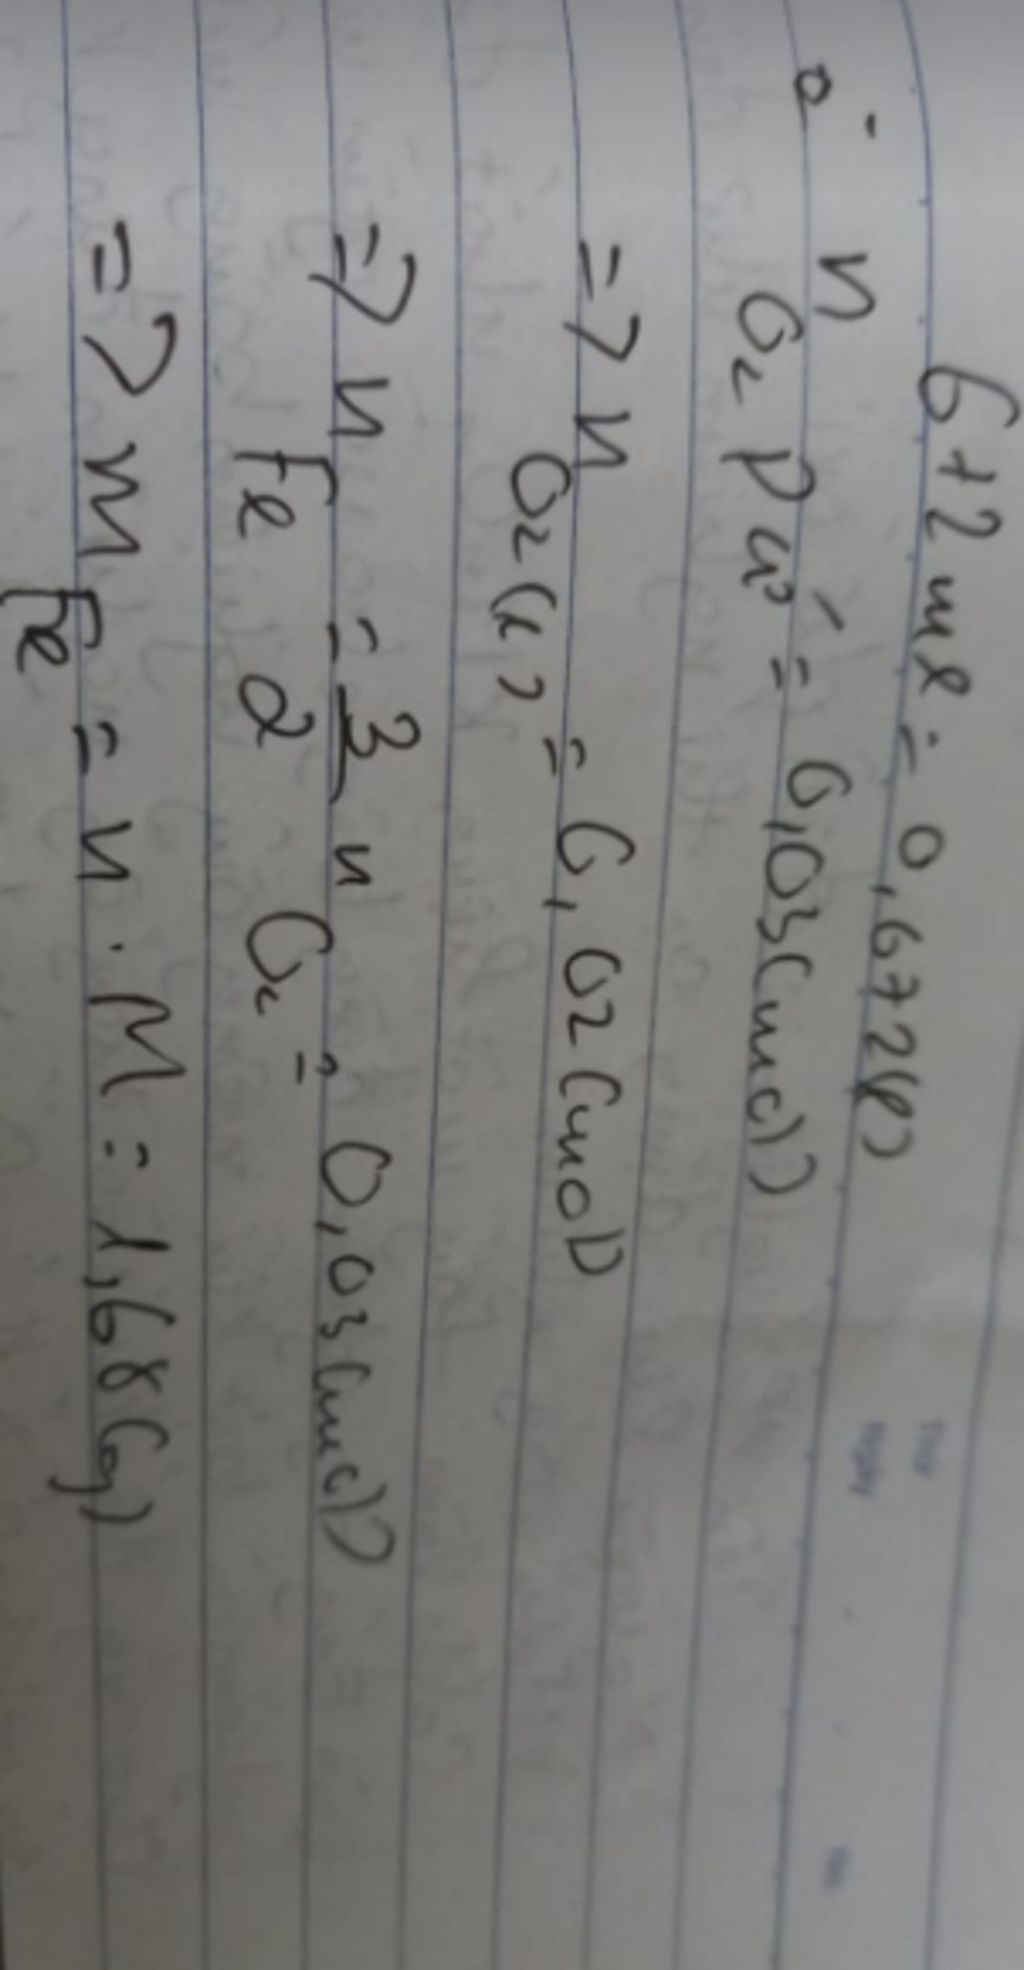 672ml = 0,672(l)
a. n O2 pứ = 0,03(mol)
=> n O2(lt) = 0,02(mol)
=> n Fe = 3/2 n O2 = 0,03(mol)
=> m Fe = n . M = 1,68(g)
Thứ
Ngày
No.